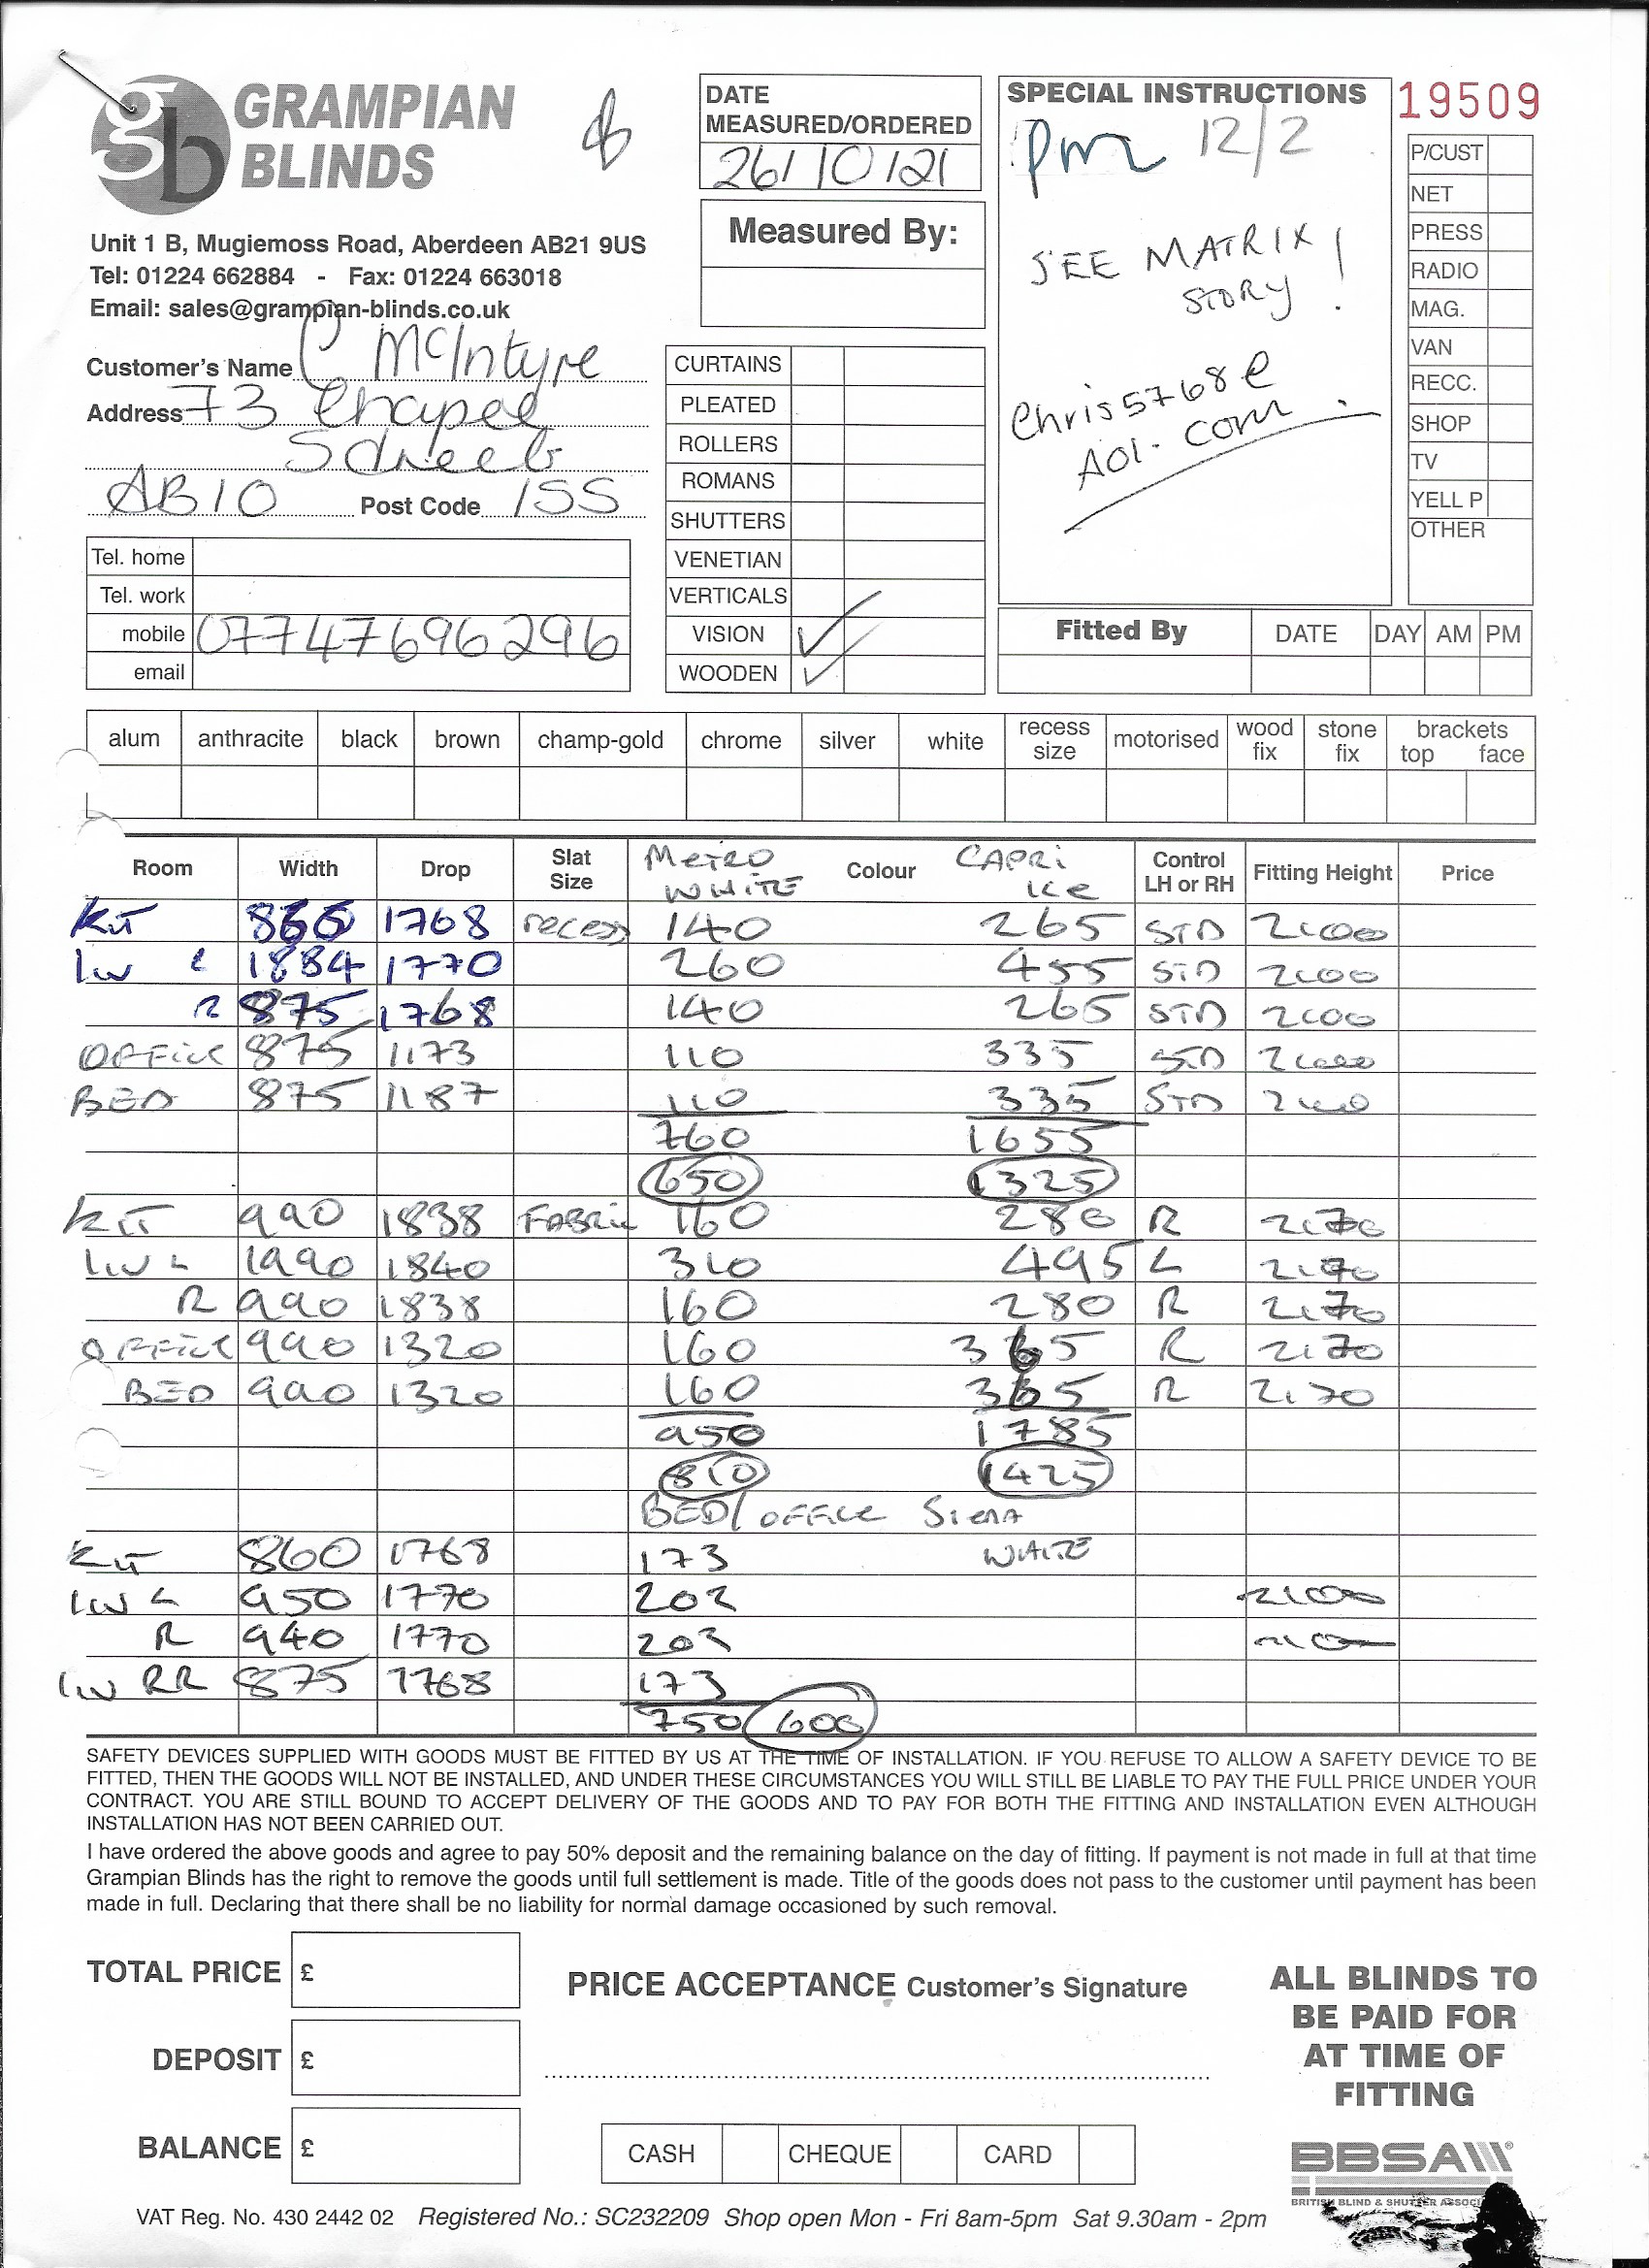 GRAMPIAN
BLINDS
Unit 1 B, Mugiemoss Road, Aberdeen AB21 9US
Tel: 01224 662884 - Fax: 01224 663018
Email: sales@grampian-blinds.co.uk
Customer's Name C McIntyre
Address 73 Chapel
Street
AB10 Post Code 1SS
Tel. home
Tel. work
mobile 07747696296
email
DATE
MEASURED/ORDERED
26/10/21
Measured By:
CURTAINS
PLEATED
ROLLERS
ROMANS
SHUTTERS
VENETIAN
VERTICALS
VISION ✓
WOODEN ✓
SPECIAL INSTRUCTIONS
pm 12/2
SEE MATRIX
STORY !
Chris5768@
AOl.com
19509
P/CUST
NET
PRESS
RADIO
MAG.
VAN
RECC.
SHOP
TV
YELL P
OTHER
Fitted By DATE DAY AM PM
alum anthracite black brown champ-gold chrome silver white recess size motorised wood fix stone fix brackets top face
Room Width Drop Slat Size METRO WHITE Colour CAPRI ICE Control LH or RH Fitting Height Price
KIT 866 1768 recess 140 265 STD 2100
LIV L 1884 1770 260 455 STD 2100
R 875 1768 140 265 STD 2100
OFFICE 875 1173 110 335 STD 2100
BED 875 1187 110 335 STD 2100
760 1655
650 1325
KIT 990 1838 FABRIC 160 280 R 2170
LIV L 1990 1840 310 495 L 2170
R 990 1838 160 280 R 2170
OFFICE 990 1320 160 365 R 2170
BED 990 1320 160 365 R 2170
950 1785
810 1425
BED/OFFICE SIENA
KIT 860 1768 173 WHITE
LIV L 950 1770 202 2100
R 940 1770 202
LIV RR 875 1768 173
750 600
SAFETY DEVICES SUPPLIED WITH GOODS MUST BE FITTED BY US AT THE TIME OF INSTALLATION. IF YOU REFUSE TO ALLOW A SAFETY DEVICE TO BE
FITTED, THEN THE GOODS WILL NOT BE INSTALLED, AND UNDER THESE CIRCUMSTANCES YOU WILL STILL BE LIABLE TO PAY THE FULL PRICE UNDER YOUR
CONTRACT. YOU ARE STILL BOUND TO ACCEPT DELIVERY OF THE GOODS AND TO PAY FOR BOTH THE FITTING AND INSTALLATION EVEN ALTHOUGH
INSTALLATION HAS NOT BEEN CARRIED OUT.
I have ordered the above goods and agree to pay 50% deposit and the remaining balance on the day of fitting. If payment is not made in full at that time
Grampian Blinds has the right to remove the goods until full settlement is made. Title of the goods does not pass to the customer until payment has been
made in full. Declaring that there shall be no liability for normal damage occasioned by such removal.
TOTAL PRICE £
DEPOSIT £
BALANCE £
PRICE ACCEPTANCE Customer's Signature
CASH CHEQUE CARD
ALL BLINDS TO
BE PAID FOR
AT TIME OF
FITTING
BBSA
BRITISH BLIND & SHUTTER
VAT Reg. No. 430 2442 02 Registered No.: SC232209 Shop open Mon - Fri 8am-5pm Sat 9.30am - 2pm